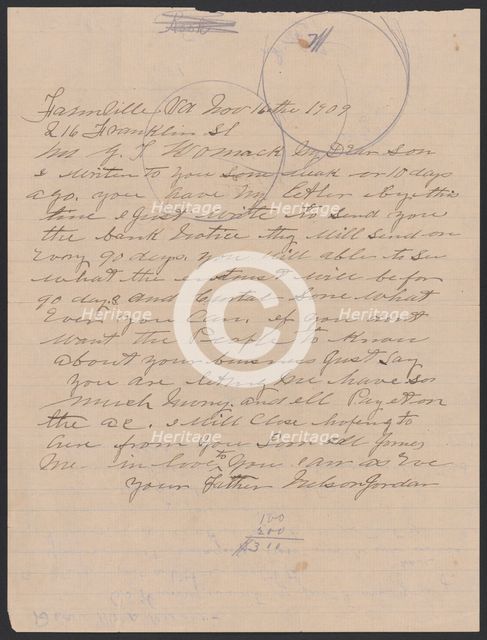 Farmville, Va Nov 16the 1909
216 Franklin St
Mr G. T. Womack My Dear Son
I writen to you some week or 10 days
ago. you have my letter by this
time I Just write to send you
the bank Notice they Will send on
Every 90 days. you Will able to See
What the intrust Will be for
90 days and Curtal Some What
Ever you Can. if you dont
Want the People to Know
about your business Just Say
you are letting me have so
much mony. and ell Pay et on
the ac. I Will Close hoping to
here from you Soon all Joines
Me in love to you I am as Eve
your Father Nelson Jordan
100
200
$3 10
Heritage
Heritage
Heritage
Heritage
Heritage
Heritage
Heritage
Heritage
C